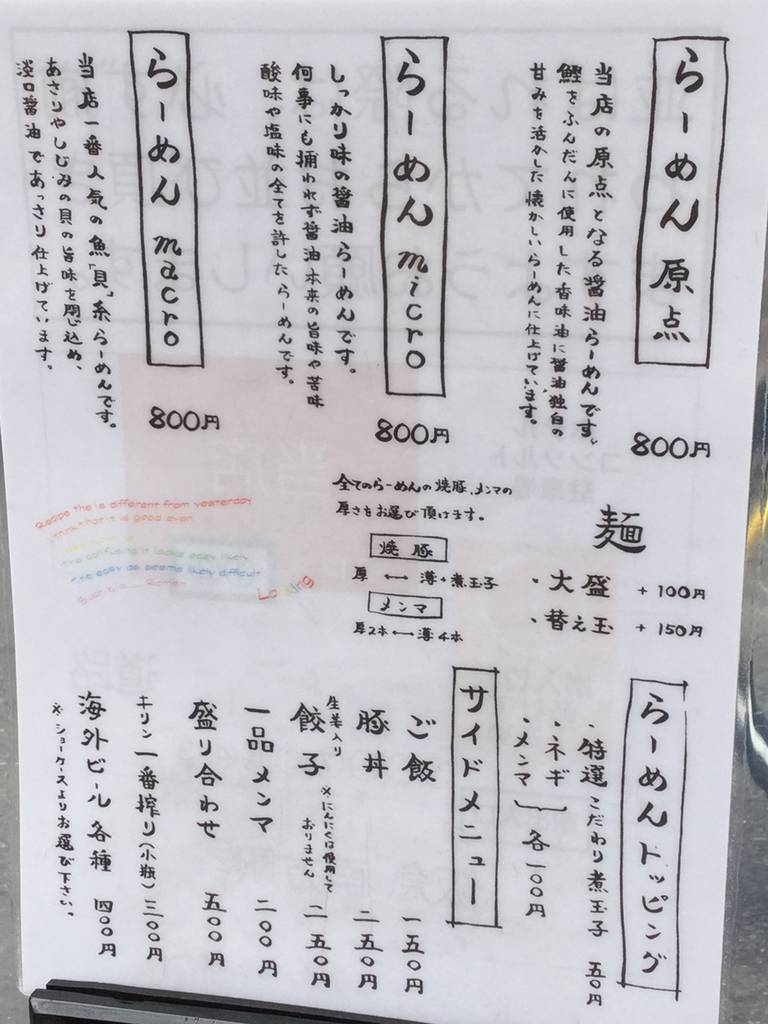 らーめん 原点
当店の原点となる醤油らーめんです。
鰹をふんだんに使用した香味油に醤油独自の
甘みを活かした懐かしいらーめんに仕上げています。
800円
らーめん micro
しっかり味の醤油らーめんです。
何事にも捕われず醤油本来の旨味や苦味
酸味や塩味の全てを許したらーめんです。
800円
らーめん macro
当店一番人気の魚「貝」系らーめんです。
あさりやしじみの貝の旨味を閉じ込め、
淡口醤油であっさり仕上げています。
800円
麺
・大盛 +100円
・替え玉 +150円
全てのらーめんの焼豚、メンマの
厚さをお選び頂けます。
焼豚
厚 ←→ 薄+煮玉子
メンマ
厚2本 ←→ 薄4本
is different from yesterday
think that it is good even
The easy as seems likely difficult
らーめんトッピング
・特選こだわり煮玉子 五〇円
・ネギ
・メンマ
各一〇〇円
サイドメニュー
ご飯 一五〇円
豚丼 二五〇円
生姜入り
餃子 ※にんにくは使用して
おりません 二五〇円
一品メンマ 二〇〇円
盛り合わせ 五〇〇円
キリン一番搾り(小瓶) 三〇〇円
海外ビール各種 四〇〇円
※ショーケースよりお選び下さい。